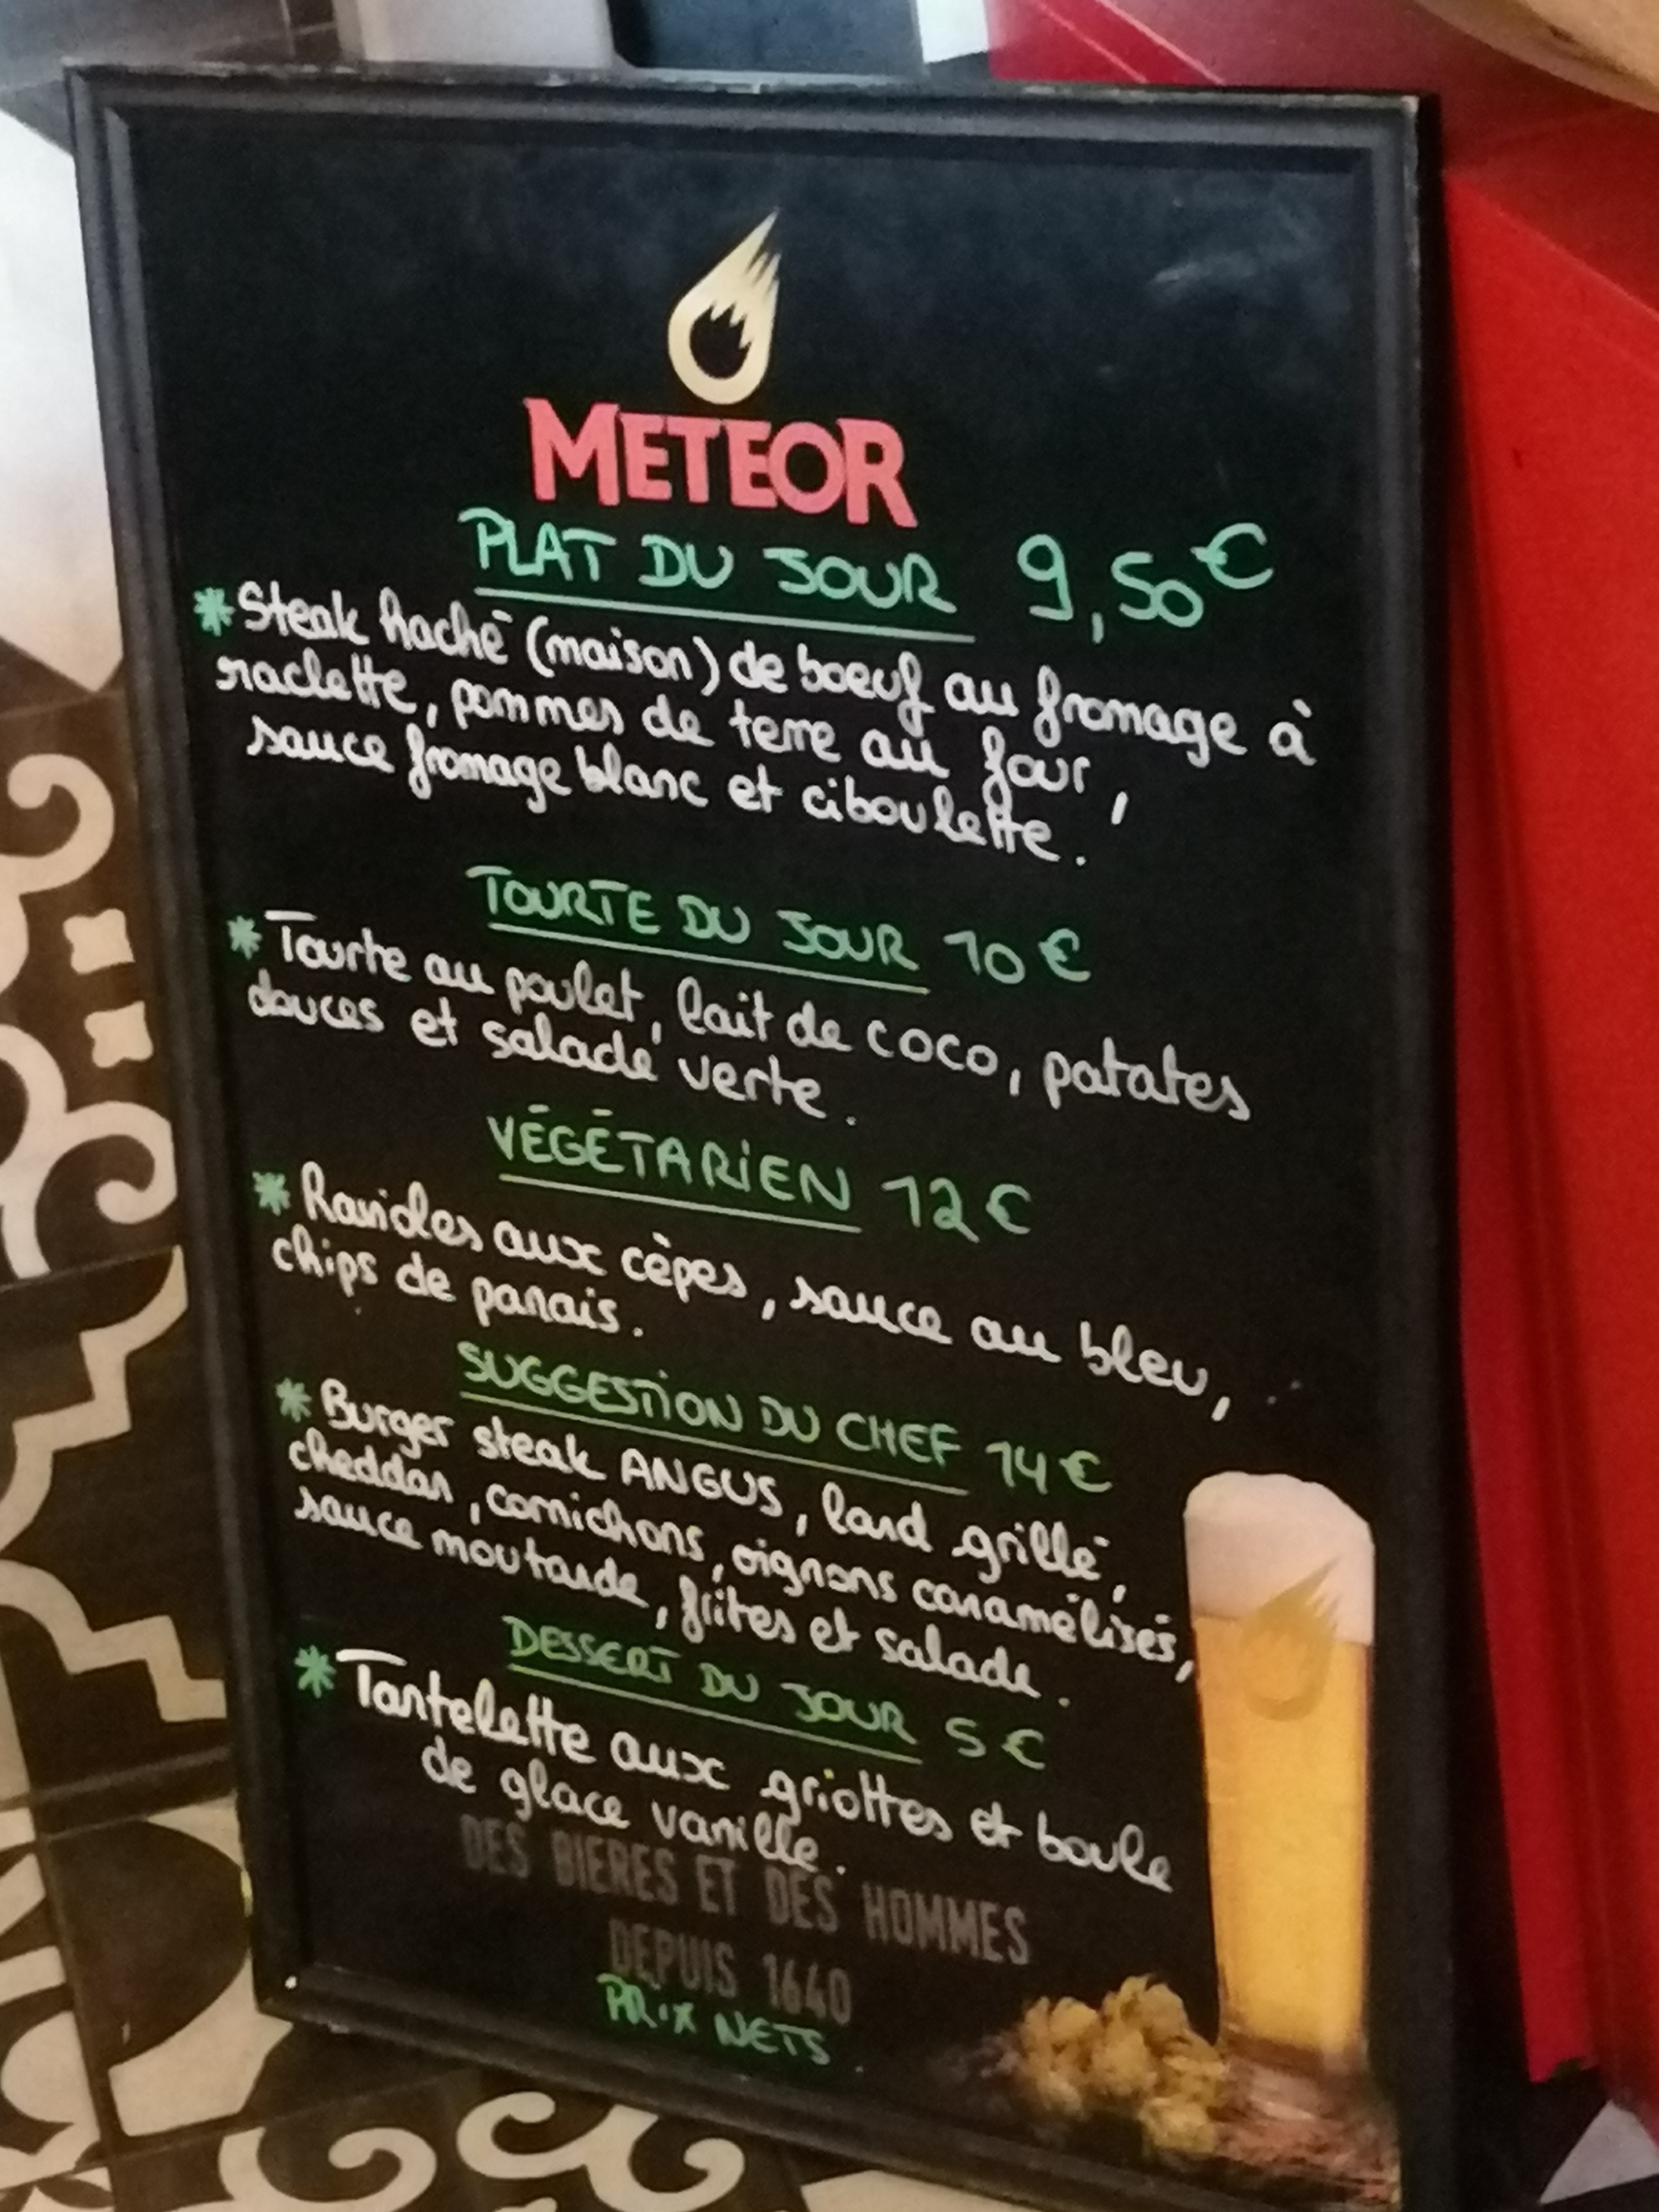 METEOR
PLAT DU JOUR 9,50€
* Steak haché (maison) de boeuf au fromage à
raclette, pommes de terre au four,
sauce fromage blanc et ciboulette.
TOURTE DU JOUR 10€
* Tourte au poulet, lait de coco, patates
douces et salade verte.
VÉGÉTARIEN 12€
* Ravioles aux cèpes, sauce au bleu,
chips de panais.
SUGGESTION DU CHEF 14€
* Burger steak ANGUS, lard grillé,
cheddar, cornichons, oignons caramélisés,
sauce moutarde, frites et salade.
DESSERT DU JOUR 5€
* Tartelette aux griottes et boule
de glace vanille.
DES BIERES ET DES HOMMES
DEPUIS 1640
PRIX NETS